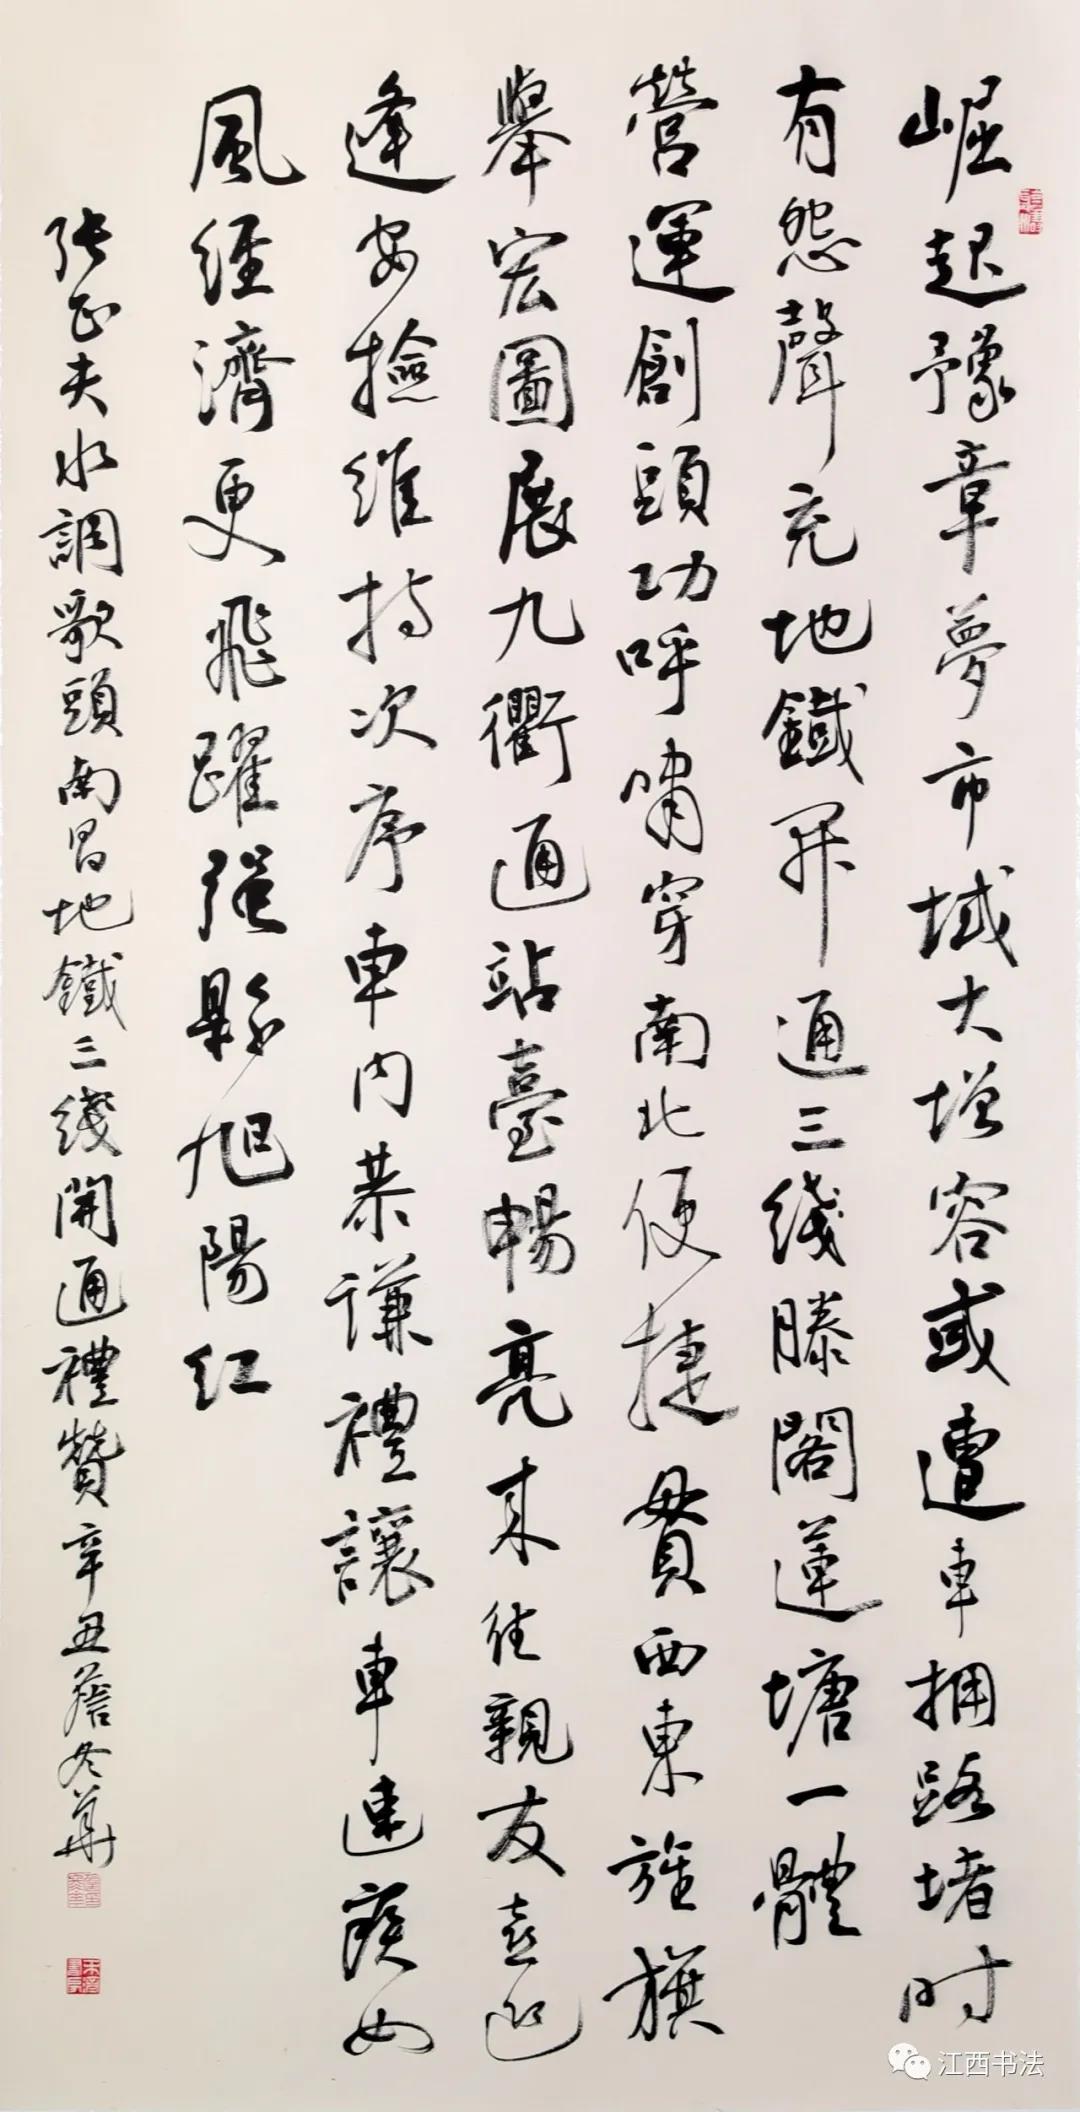 崛起豫章夢市域大增容或遭車拥路堵时
有怨聲充地鐵开通三线滕閣蓮塘一體
營運創頭功呼嘯穿南北便捷貫西東旌旗
舉宏圖展九衢通站臺暢亮来往親友喜迎
逢安撿维持次序車内恭谦禮讓車速疾如
風经濟更飛躍强縣旭陽红
张正夫水調歌頭南昌地鐵三线開通禮贊辛丑詹冬華
江西书法